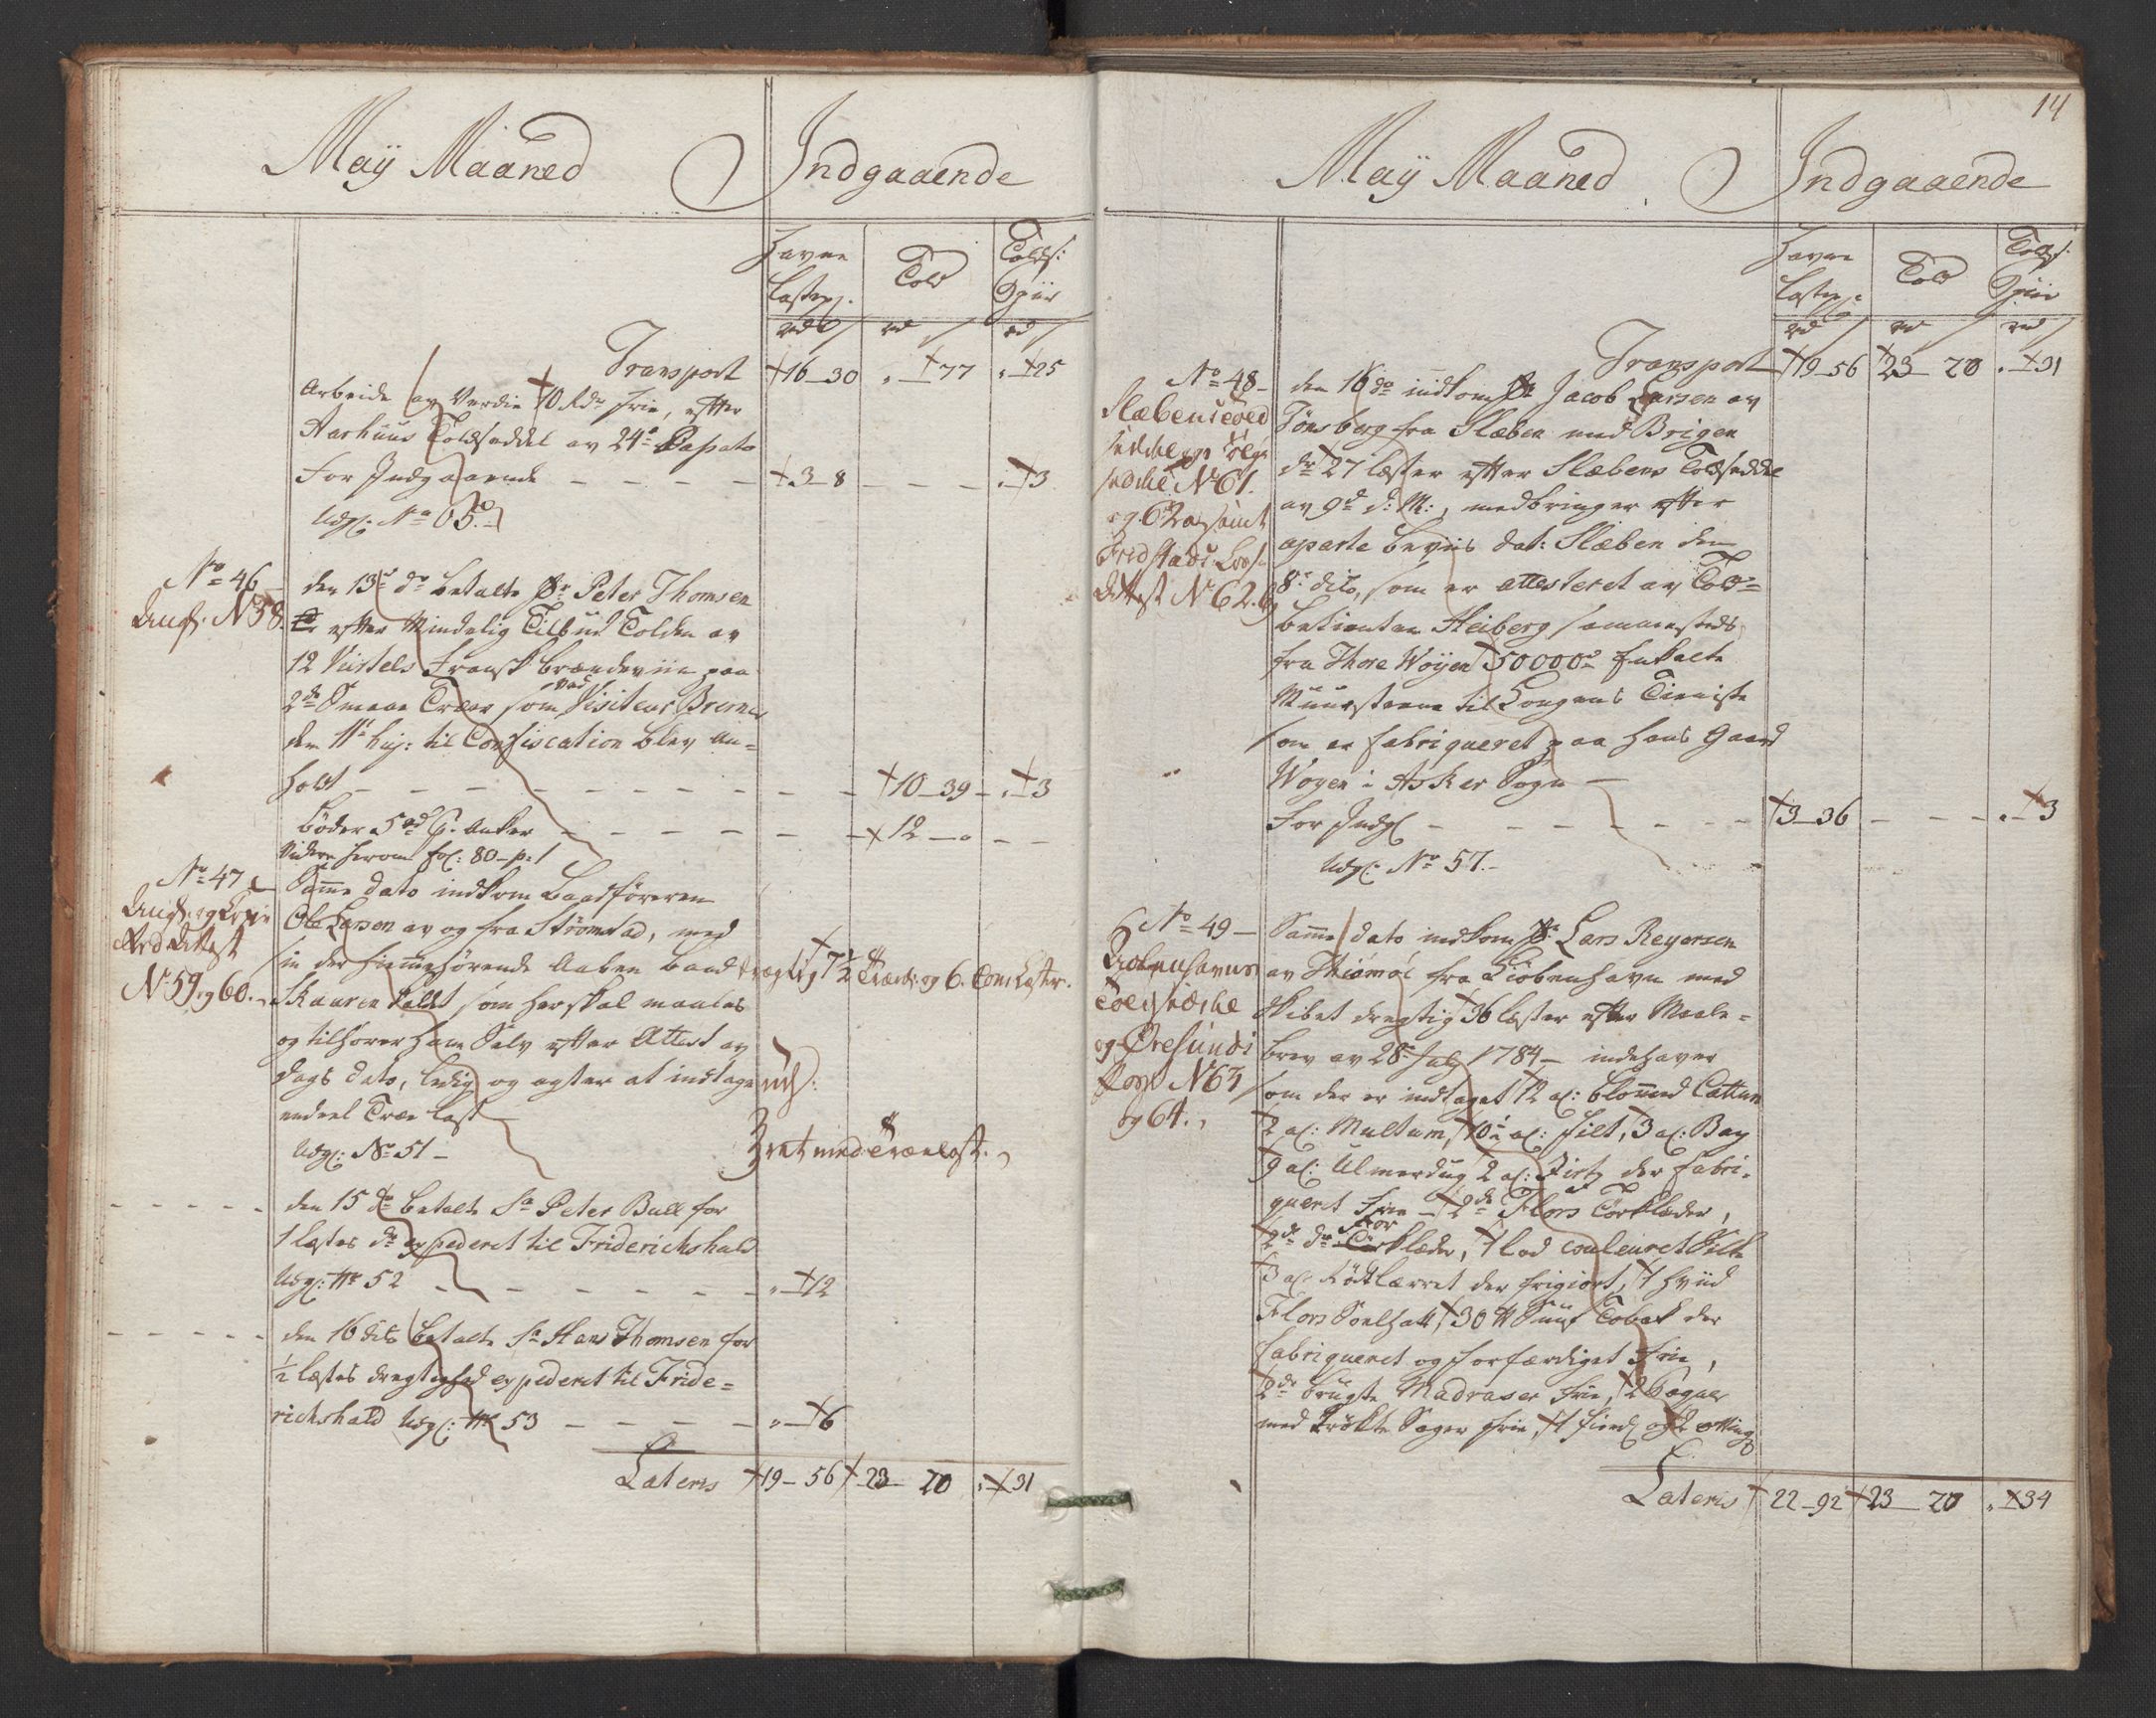 May Maaned Indgaaende
Havne
Lastep:
Told
Tolds:
Opiir
rd s rd s rd s
Transport 16_30 „_77 „_25
Arbeide av Verdie 10 Rdr frie, efter
Aarhuus Toldseddel av 24de Passato
For Indgaaende 3_8 _ _ _ „_3
Udg: No
No 46
Angf: No 58.
den 13de do betalte Sr Peter Thomsen
efter Mindelig Tilbud Tolden av
12 Viertels Fransk brændeviin paa
2de Smaae Træer som ved Visiteur Brerner
den 11te huj: til Confiscation blev an=
holdt _ _ _ 10_39 _ „_3
Bøder 5 rd P. Anker _ _ _ 12_„ _ _
Videre herom fol: 80_p:1
No 47
No 59 og 60.
Samme dato indkom Baadføreren
Ole Larson av og fra Strømstad, med
sin der hiemmehørende Aaben Baad drægtig 7½ Træl: og 6. Com: Læster.
Skauren kaldt, som her skal maales
og tilhører ham Selv efter Attest av
dags dato, ledig og agter at indtage
endeel Træe last
Udg: No 51 _
Zret med Trælast.
den 15 do betalte Sr Peter Bull for
1 læstes do expederet til Friderichshald
Udg: No 52 _ _ _ „_12
den 16 dito betalte Sr Hans Thomsen for
½ læstes drægtighed expederet til Fride=
richshald Udg: No 53 _ _ _ „_6
Lateris 19_56 23_20 „_31
14
May Maaned Indgaaende
Havne
Lastep:
Told
Tolds:
Opiir
rd s rd s rd s
Transport 19_56 23_20 „_31
No 48
Slæbens Told
sedel og følge
seddel No 61.
og 62 samt
Fredstads
Attest No 62.
den 16 do indkom Sr Jacob Larsen av
Tønsberg fra Slæben med Brigen
dr 27 læster efter Slæbens Toldseddel
av 9de d: M:, medbringer efter
aparte beviis dat: Slæben den
8de dito, som er attesteret av Told=
betienten Heiberg sammesteds
fra Thore Wøyen 50000de brendte
Muursteene til Kongens Tieniste
som er fabriqueret paa hans Gaard
Wøyen i Asker Sogn
For Indg: _ _ _ 3_36 _ _ _ „_3
Udg: No 57._
No 49
Kiøbenhavns
Toldseddel
og Øresunds
No 63
og 64.
Samme dato indkom Sr Lars Reyersen
av Thiømøe fra Kiøbenhavn med
Skibet drægtig 36 læster efter Maale=
brev av 28de July 1784 _ indehaver
som der er indtaget 12 al: blommed Cattun
2 al: Multum, 10½ al: filt, 3 al: Bay
9 al: Ulmerdug 2 al: Zirtz der fabri=
queret frie _ 2de Flors Tørklæder,
2de do Forklæder, 1 lod couleuret Silke
3 al: Rødt lærret der frigiort, 1 hviid
Flors Soelhatt, 30 ℔ Snus Tobak der
fabriqueret og forfærdiget frie,
2de brugte Madrasser frie, 2 Bøger
med trøkte Sager frie, 1 fierd: og 2 otting
Lateris 22_92 23_20 „_34